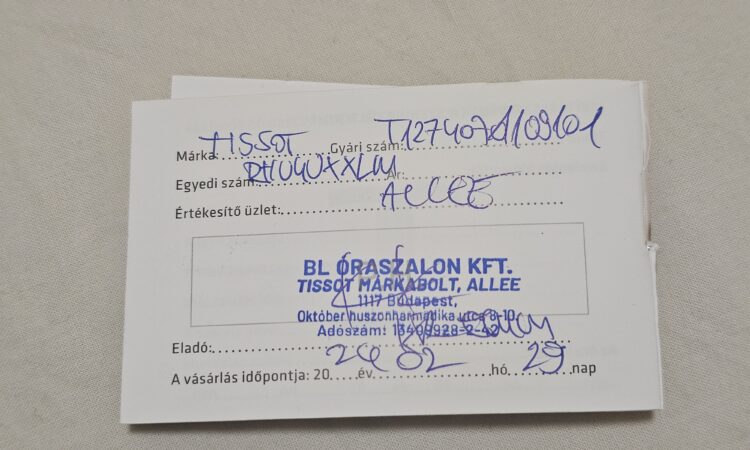 Márka: TISSOT Gyári szám: T127407A1109101
Egyedi szám: Ár:
Értékesítő üzlet: ALLEE
BL ÓRASZALON KFT.
TISSOT MÁRKABOLT, ALLEE
1117 Budapest,
Október huszonharmadika utca 8-10.
Adószám:
Eladó:
A vásárlás időpontja: 2024 év 02 hó 29 nap